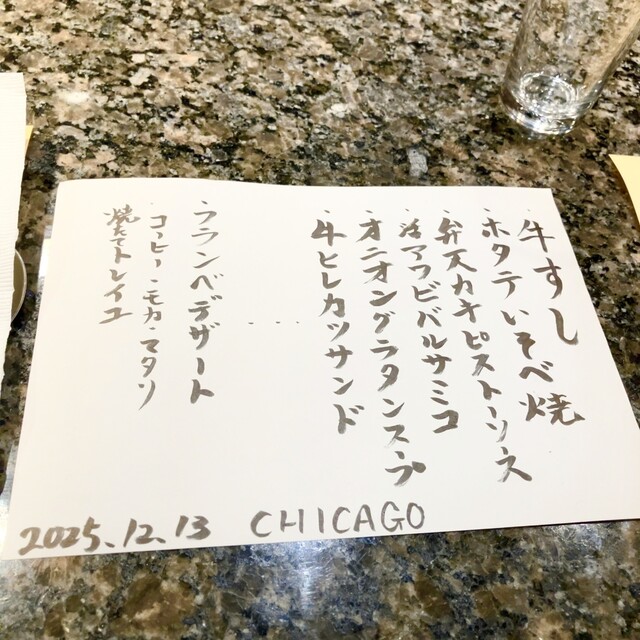 ・牛すし
・ホタテいそべ焼
・弁天カキピストーソース
・活アワビバルサミコ
・オニオングラタンスープ
・牛ヒレカツサンド
・・・・
・フランベデザート
・コーヒー・モカ・マタリ
・焼きたてトレイユ
2025.12.13 CHICAGO